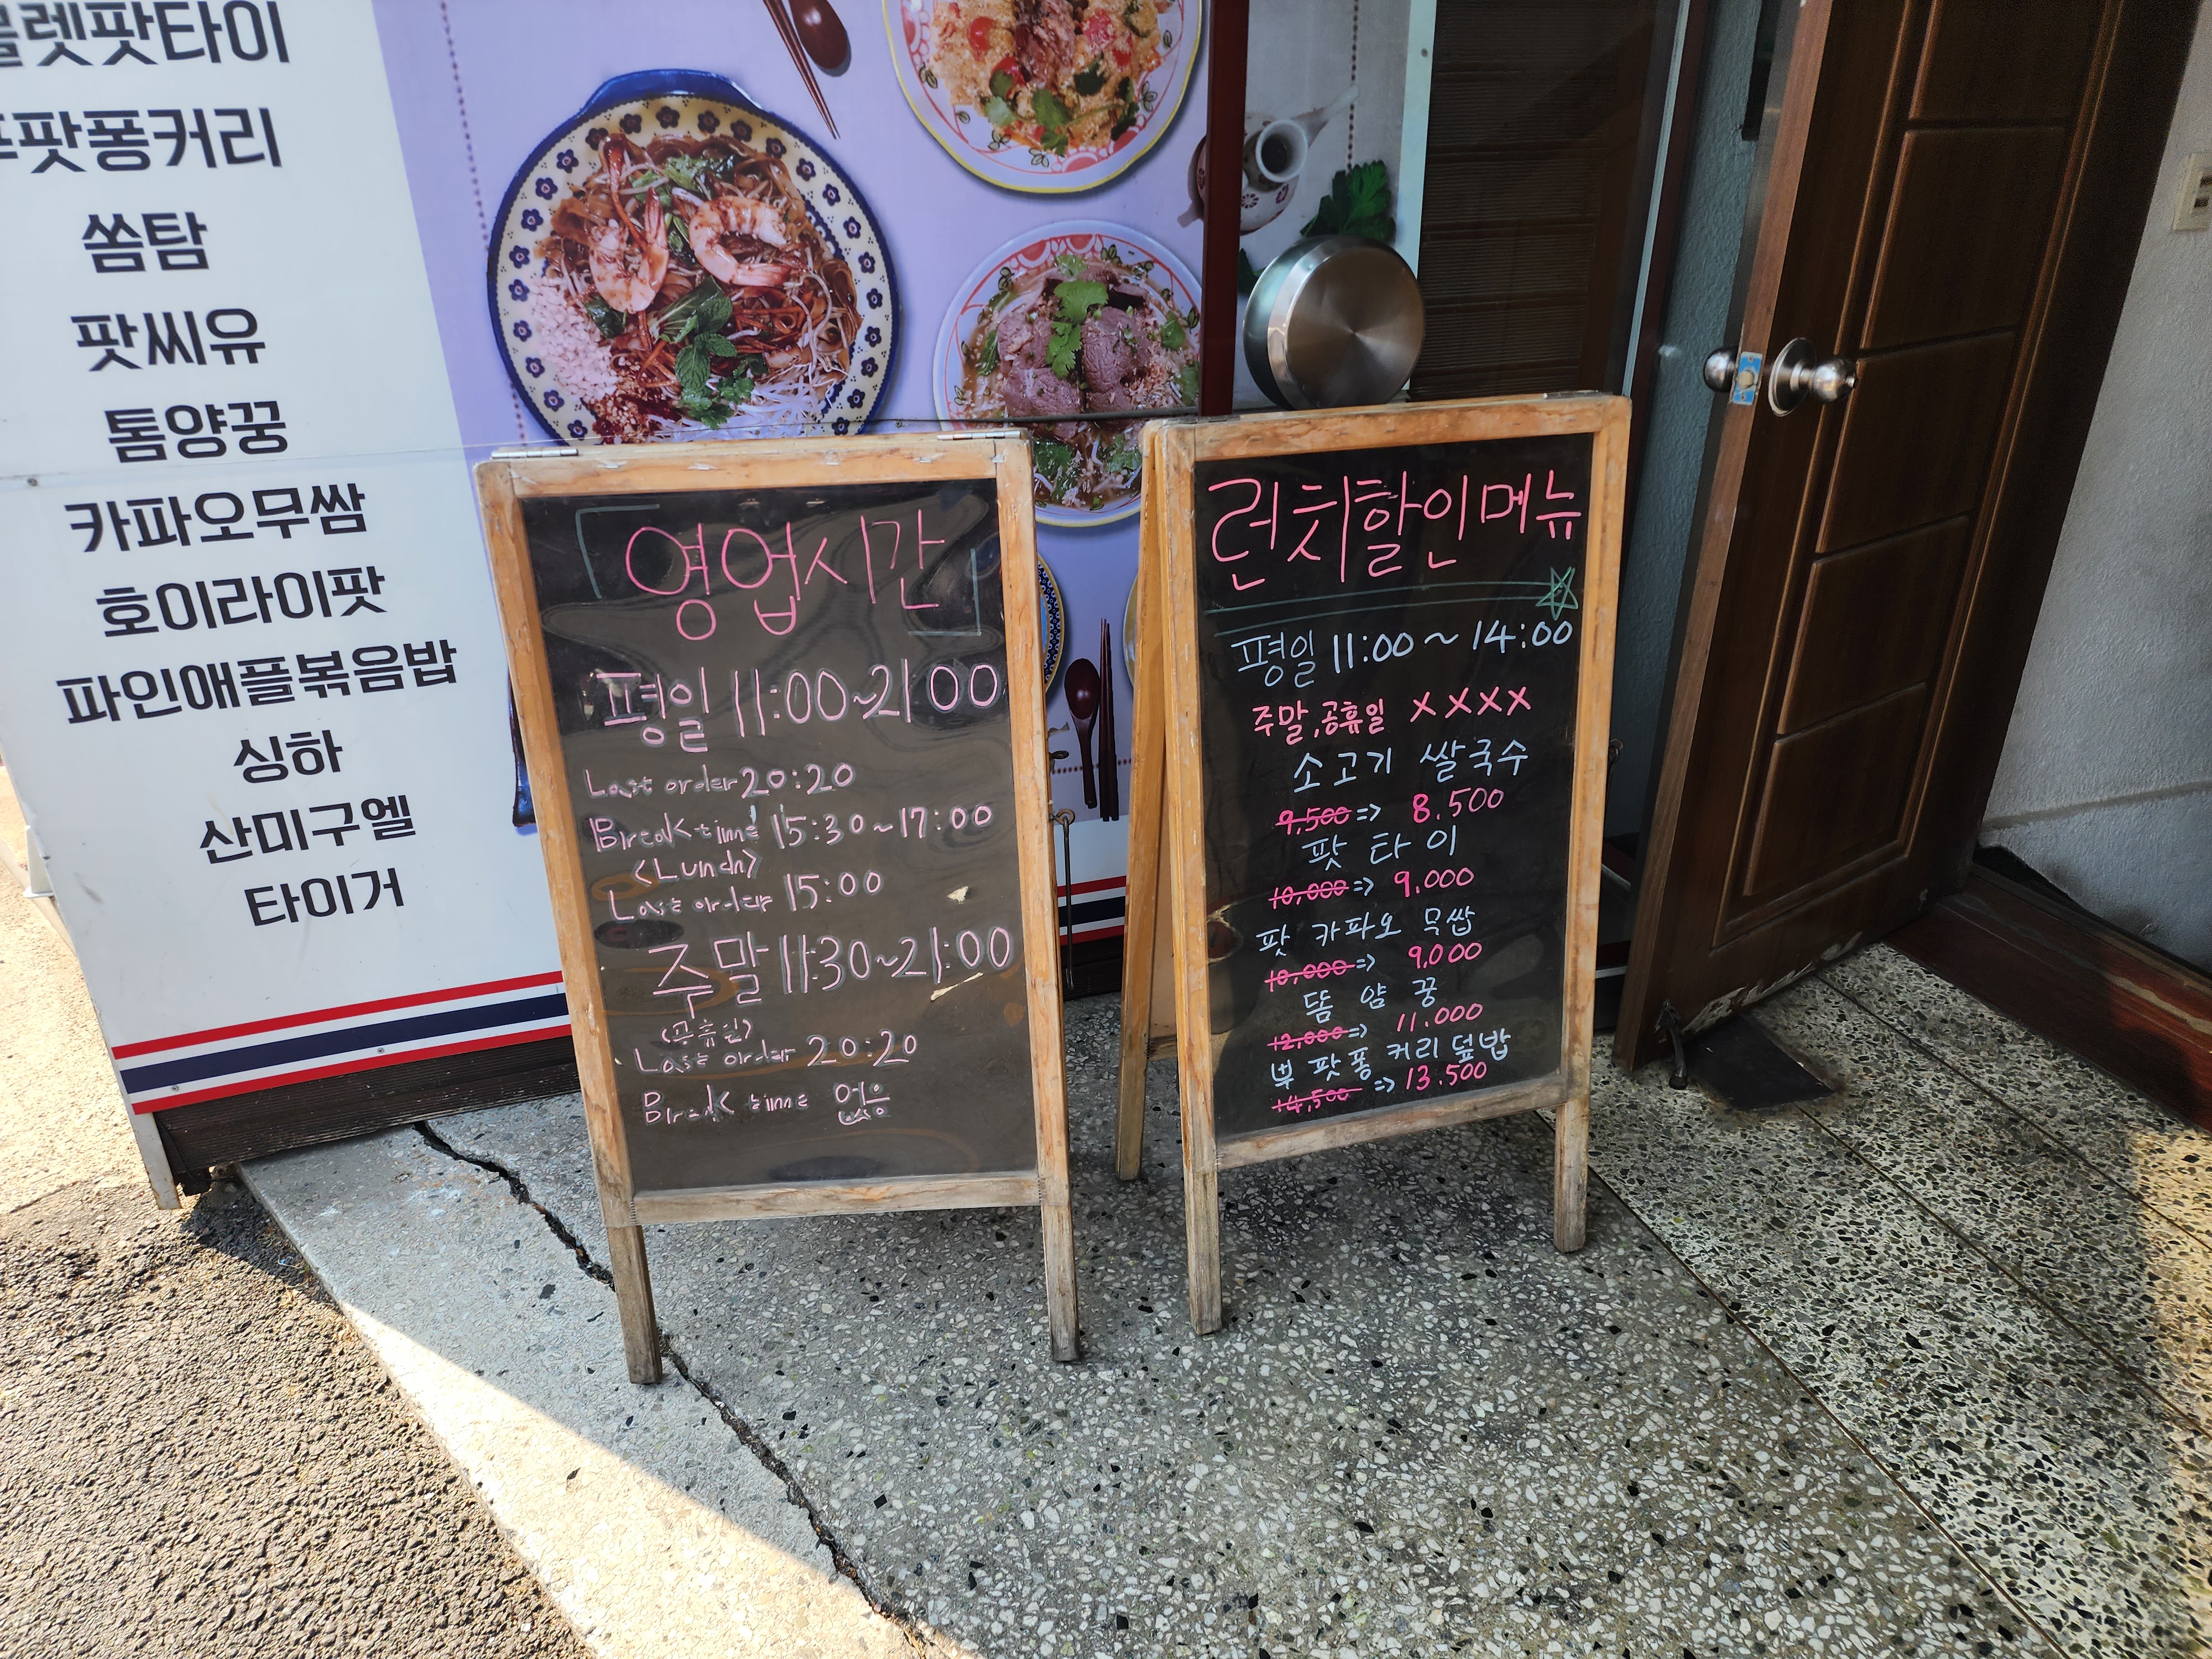 팟타이
팟퐁커리
쏨탐
팟씨유
톰양꿍
카파오무쌈
호이라이팟
파인애플볶음밥
싱하
산미구엘
타이거
「영업시간」
평일 11:00~21:00
Last order 20:20
Break time 15:30~17:00
<Lunch>
Last order 15:00
주말 11:30~21:00
(공휴일)
Last order 20:20
Break time 없음
런치할인메뉴
평일 11:00~14:00
주말,공휴일 XXXX
소고기 쌀국수
9,500=> 8.500
팟 타이
10,000=> 9.000
팟 카파오 무쌉
10,000=> 9,000
똠 얌 꿍
12,000=> 11.000
뿌 팟 퐁 커리 덮밥
14,500=> 13.500